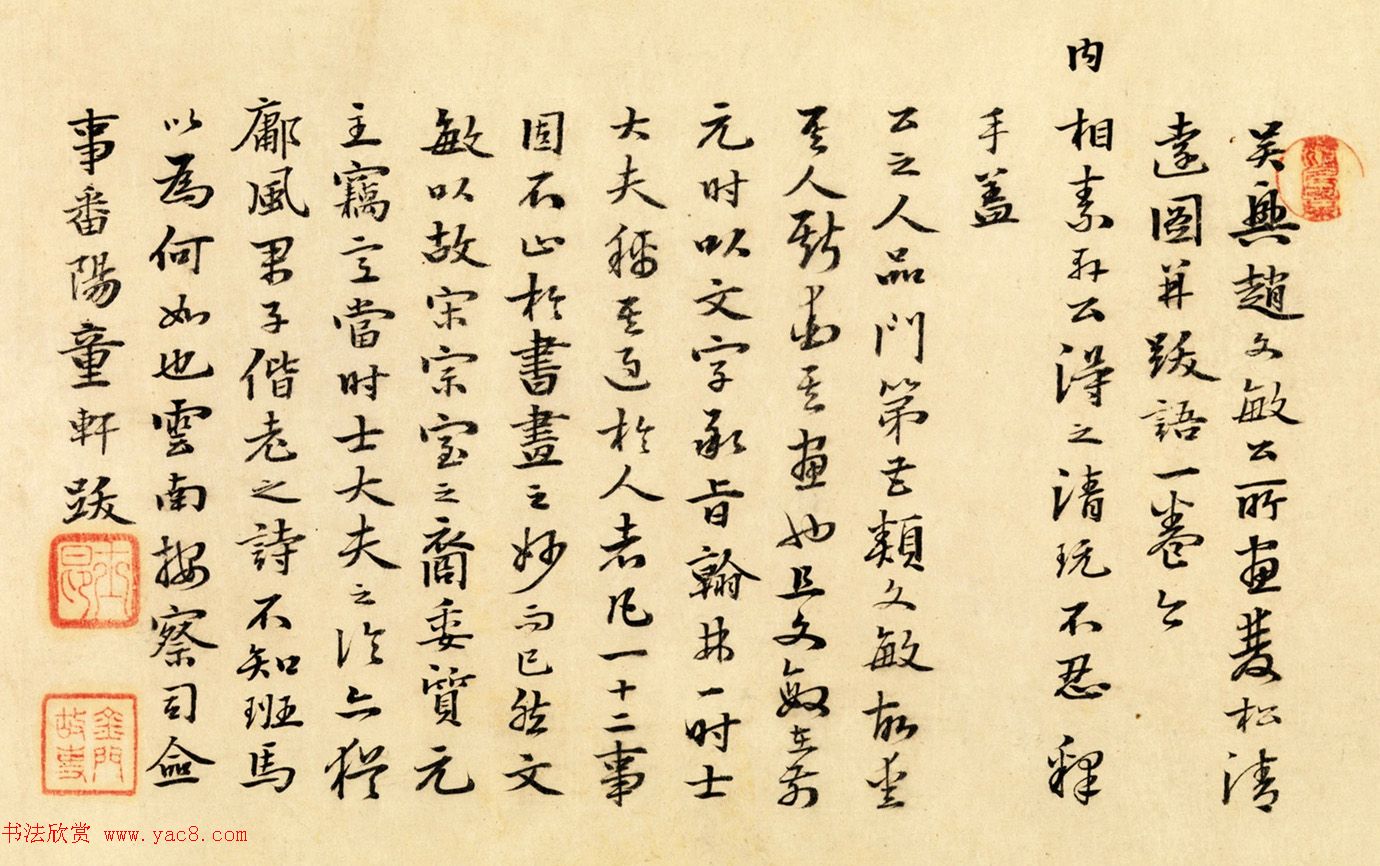 吴興趙文敏公所畫雙松清
遠圖并跋語一卷今
内相素公得之清玩不忍釋
手蓋
公之人品門第甚類文敏故愛
其人斯愛其畫也且文敏在前
元时以文字承旨翰林一时士
大夫稱其過於人者凡一十二事
固不止於書畫之妙而已然文
敏以故宋宗室之裔委質元
主竊意當时士大夫之論亦猶
鄘風君子偕老之詩不知班馬
以為何如也雲南按察司僉
事番陽童軒跋
士昂
金門故事
书法欣赏 www.yac8.com